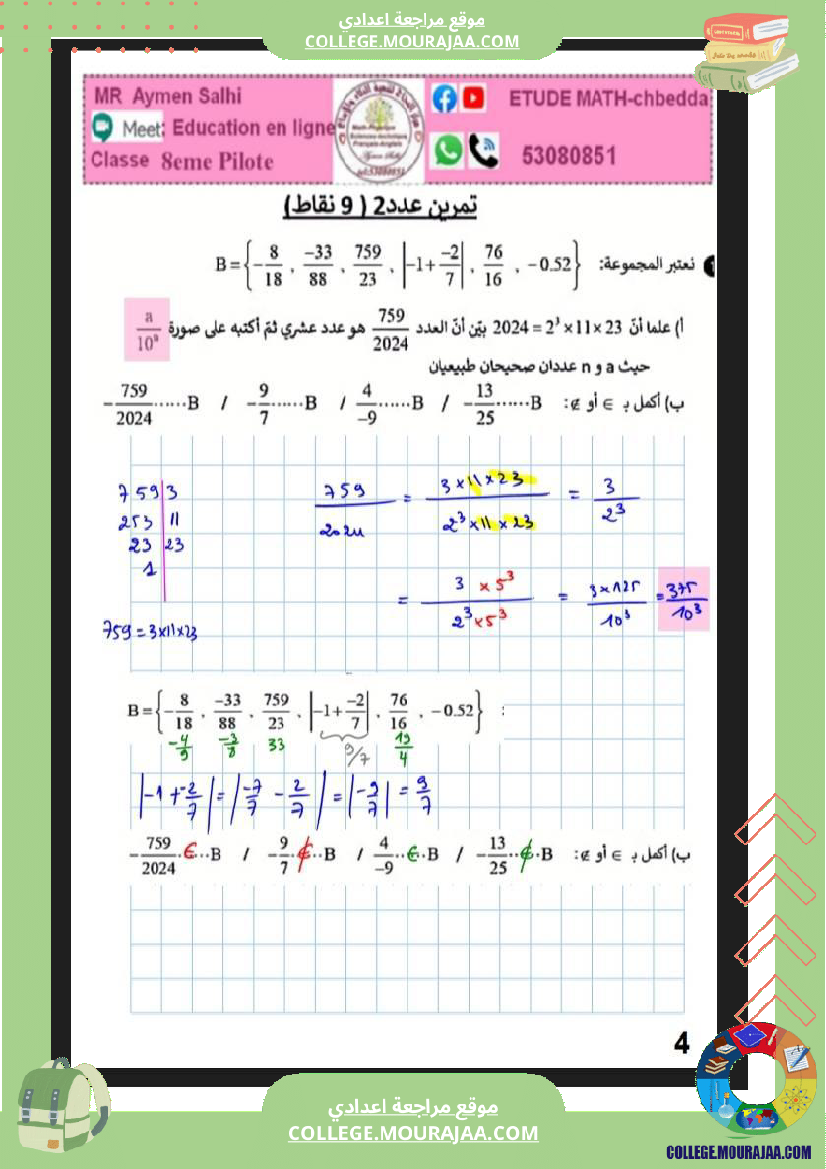 موقع مراجعة اعدادي
COLLEGE.MOURAJAA.COM
MR Aymen Salhi
Meet: Education en ligne
Classe 8eme Pilote
ETUDE MATH-chbedda
53080851
تمرين عدد2 ( 9 نقاط)
نعتبر المجموعة: B = {-8/18 , -33/88 , 759/23 , |-1+-2/7| , 76/16 , -0.52}
أ) علما أنّ 2024 = 2³×11×23 بيّن أنّ العدد 759/2024 هو عدد عشري ثمّ أكتبه على صورة a/10ⁿ
حيث a و n عددان صحيحان طبيعيان
ب) أكمل بـ ∈ أو ∉: -13/25......B / 4/-9......B / -9/7......B / -759/2024......B
759 | 3
253 | 11
23 | 23
1
759 = 3×11×23
759/2024 = 3×11×23/2³×11×23 = 3/2³
= 3×5³/2³×5³ = 3×125/10³ = 375/10³
B = {-8/18 , -33/88 , 759/23 , |-1+-2/7| , 76/16 , -0.52} :
-4/9 -3/8 33 9/7 19/4
|-1+-2/7| = |-7/7 - 2/7| = |-9/7| = 9/7
ب) أكمل بـ ∈ أو ∉: -13/25..∉.B / 4/-9..∈.B / -9/7.∉..B / -759/2024.∈...B
4
موقع مراجعة اعدادي
COLLEGE.MOURAJAA.COM
COLLEGE.MOURAJAA.COM